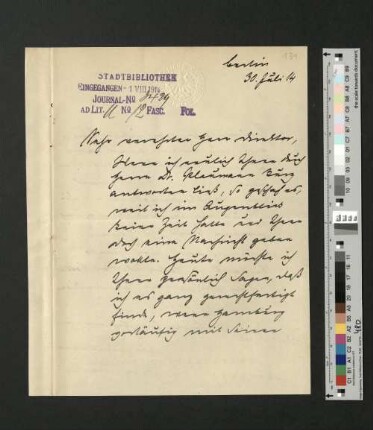 Berlin
30. Juli 14
STADTBIBLIOTHEK
EINGEGANGEN - 1 VIII 1914
JOURNAL-No
AD LIT. No FASC. FOL.
Sehr verehrter Herr Direktor,
Wenn ich neulich Ihnen durch
Herrn Dr. kurz
antworten ließ, so geschah es,
weil ich im Augenblick
keine Zeit hatte und Ihnen
doch eine Nachricht geben
wollte. Heute möchte ich
Ihnen persönlich sagen, daß
ich es ganz gerechtfertigt
finde, wenn Hamburg
vorläufig mit seiner